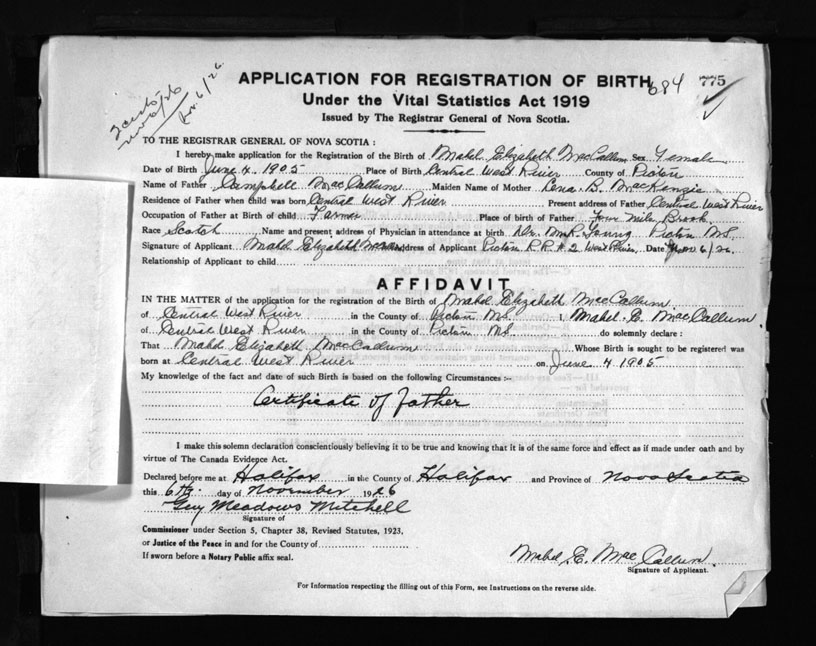 APPLICATION FOR REGISTRATION OF BIRTH 684 775
Under the Vital Statistics Act 1919
Issued by The Registrar General of Nova Scotia.
TO THE REGISTRAR GENERAL OF NOVA SCOTIA:
I hereby make application for the Registration of the Birth of Mabel Elizabeth MacCallum Sex Female
Date of Birth June 4, 1905 Place of Birth Central West River County of Pictou
Name of Father Campbell MacCallum Maiden Name of Mother Lena B. MacKenzie
Residence of Father when child was born Central West River Present address of Father Central West River
Occupation of Father at Birth of child Farmer Place of Birth of Father Four Mile Brook
Race Scotch Name and present address of Physician in attendance at birth Dr. M.R. Young Pictou N.S.
Signature of Applicant Mabel Elizabeth Mac Address of Applicant Pictou R.R. # 2 West River, Date Nov 6/26.
Relationship of Applicant to child
AFFIDAVIT
IN THE MATTER of the application for the registration of the Birth of Mabel Elizabeth MacCallum
of Central West River in the County of Pictou N.S. I, Mabel E. MacCallum.
of Central West River in the County of Pictou N.S. do solemnly declare:
That Mabel Elizabeth MacCallum Whose Birth is sought to be registered was
born at Central West River on June 4 1905
My knowledge of the fact and date of such Birth is based on the following Circumstances :-
Certificate of Father
I make this solemn declaration conscientiously believing it to be true and knowing that it is of the same force and effect as if made under oath and by
virtue of The Canada Evidence Act.
Declared before me at Halifax in the County of Halifax and Province of Nova Scotia
this 6th day of November 1926
Guy Meadows Mitchell
Signature of
Commissioner under Section 5, Chapter 38, Revised Statutes, 1923,
or Justice of the Peace in and for the County of
If sworn before a Notary Public affix seal.
Mabel E. MacCallum.
Signature of Applicant.
For Information respecting the filling out of this Form, see Instructions on the reverse side.